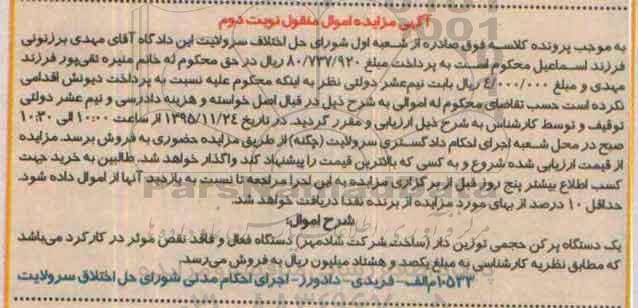 آگهی مزایده اموال منقول نوبت دوم
به موجب پرونده کلاسه فوق صادره از شعبه اول شورای حل اختلاف سرولایت این دادگاه آقای مهدی برزنونی
فرزند اسماعیل محکوم است به پرداخت مبلغ ۸۰/۷۳۷/۹۲۰ ریال در حق محکوم له خانم منیره تقی‌پور فرزند
مهدی و مبلغ ۴/۰۰۰/۰۰۰ ریال بابت نیم‌عشر دولتی نظر به اینکه محکوم علیه نسبت به پرداخت دیونش اقدامی
نکرده است حسب تقاضای محکوم له اموالی به شرح ذیل در قبال اصل خواسته و هزینه دادرسی و نیم عشر دولتی
توقیف و توسط کارشناس به شرح ذیل ارزیابی و مقرر گردید. در تاریخ ۱۳۹۵/۱۱/۲۴ از ساعت ۱۰:۰۰ الی ۱۰:۳۰
صبح در محل شعبه اجرای احکام دادگستری سرولایت (چکنه) از طریق مزایده حضوری به فروش برسد. مزایده
از قیمت ارزیابی شده شروع و به کسی که بالاترین قیمت را پیشنهاد کند واگذار خواهد شد. طالبین به خرید جهت
کسب اطلاع بیشتر پنج روز قبل از برگزاری مزایده به این اجرا مراجعه تا نسبت به بازدید آنها از اموال داده شود.
حداقل ۱۰ درصد از بهای مورد مزایده از برنده نقدا دریافت خواهد شد.
شرح اموال:
یک دستگاه پرکن حجمی توزین دار (ساخت شرکت شادمهر) دستگاه فعال و فاقد نقص موثر در کارکرد می‌باشد
که مطابق نظریه کارشناسی به مبلغ یکصد و هشتاد میلیون ریال به فروش می‌رسد.
۱۰۵۳۳م‌الف-فریدی- دادورز- اجرای احکام مدنی شورای حل اختلاف سرولایت